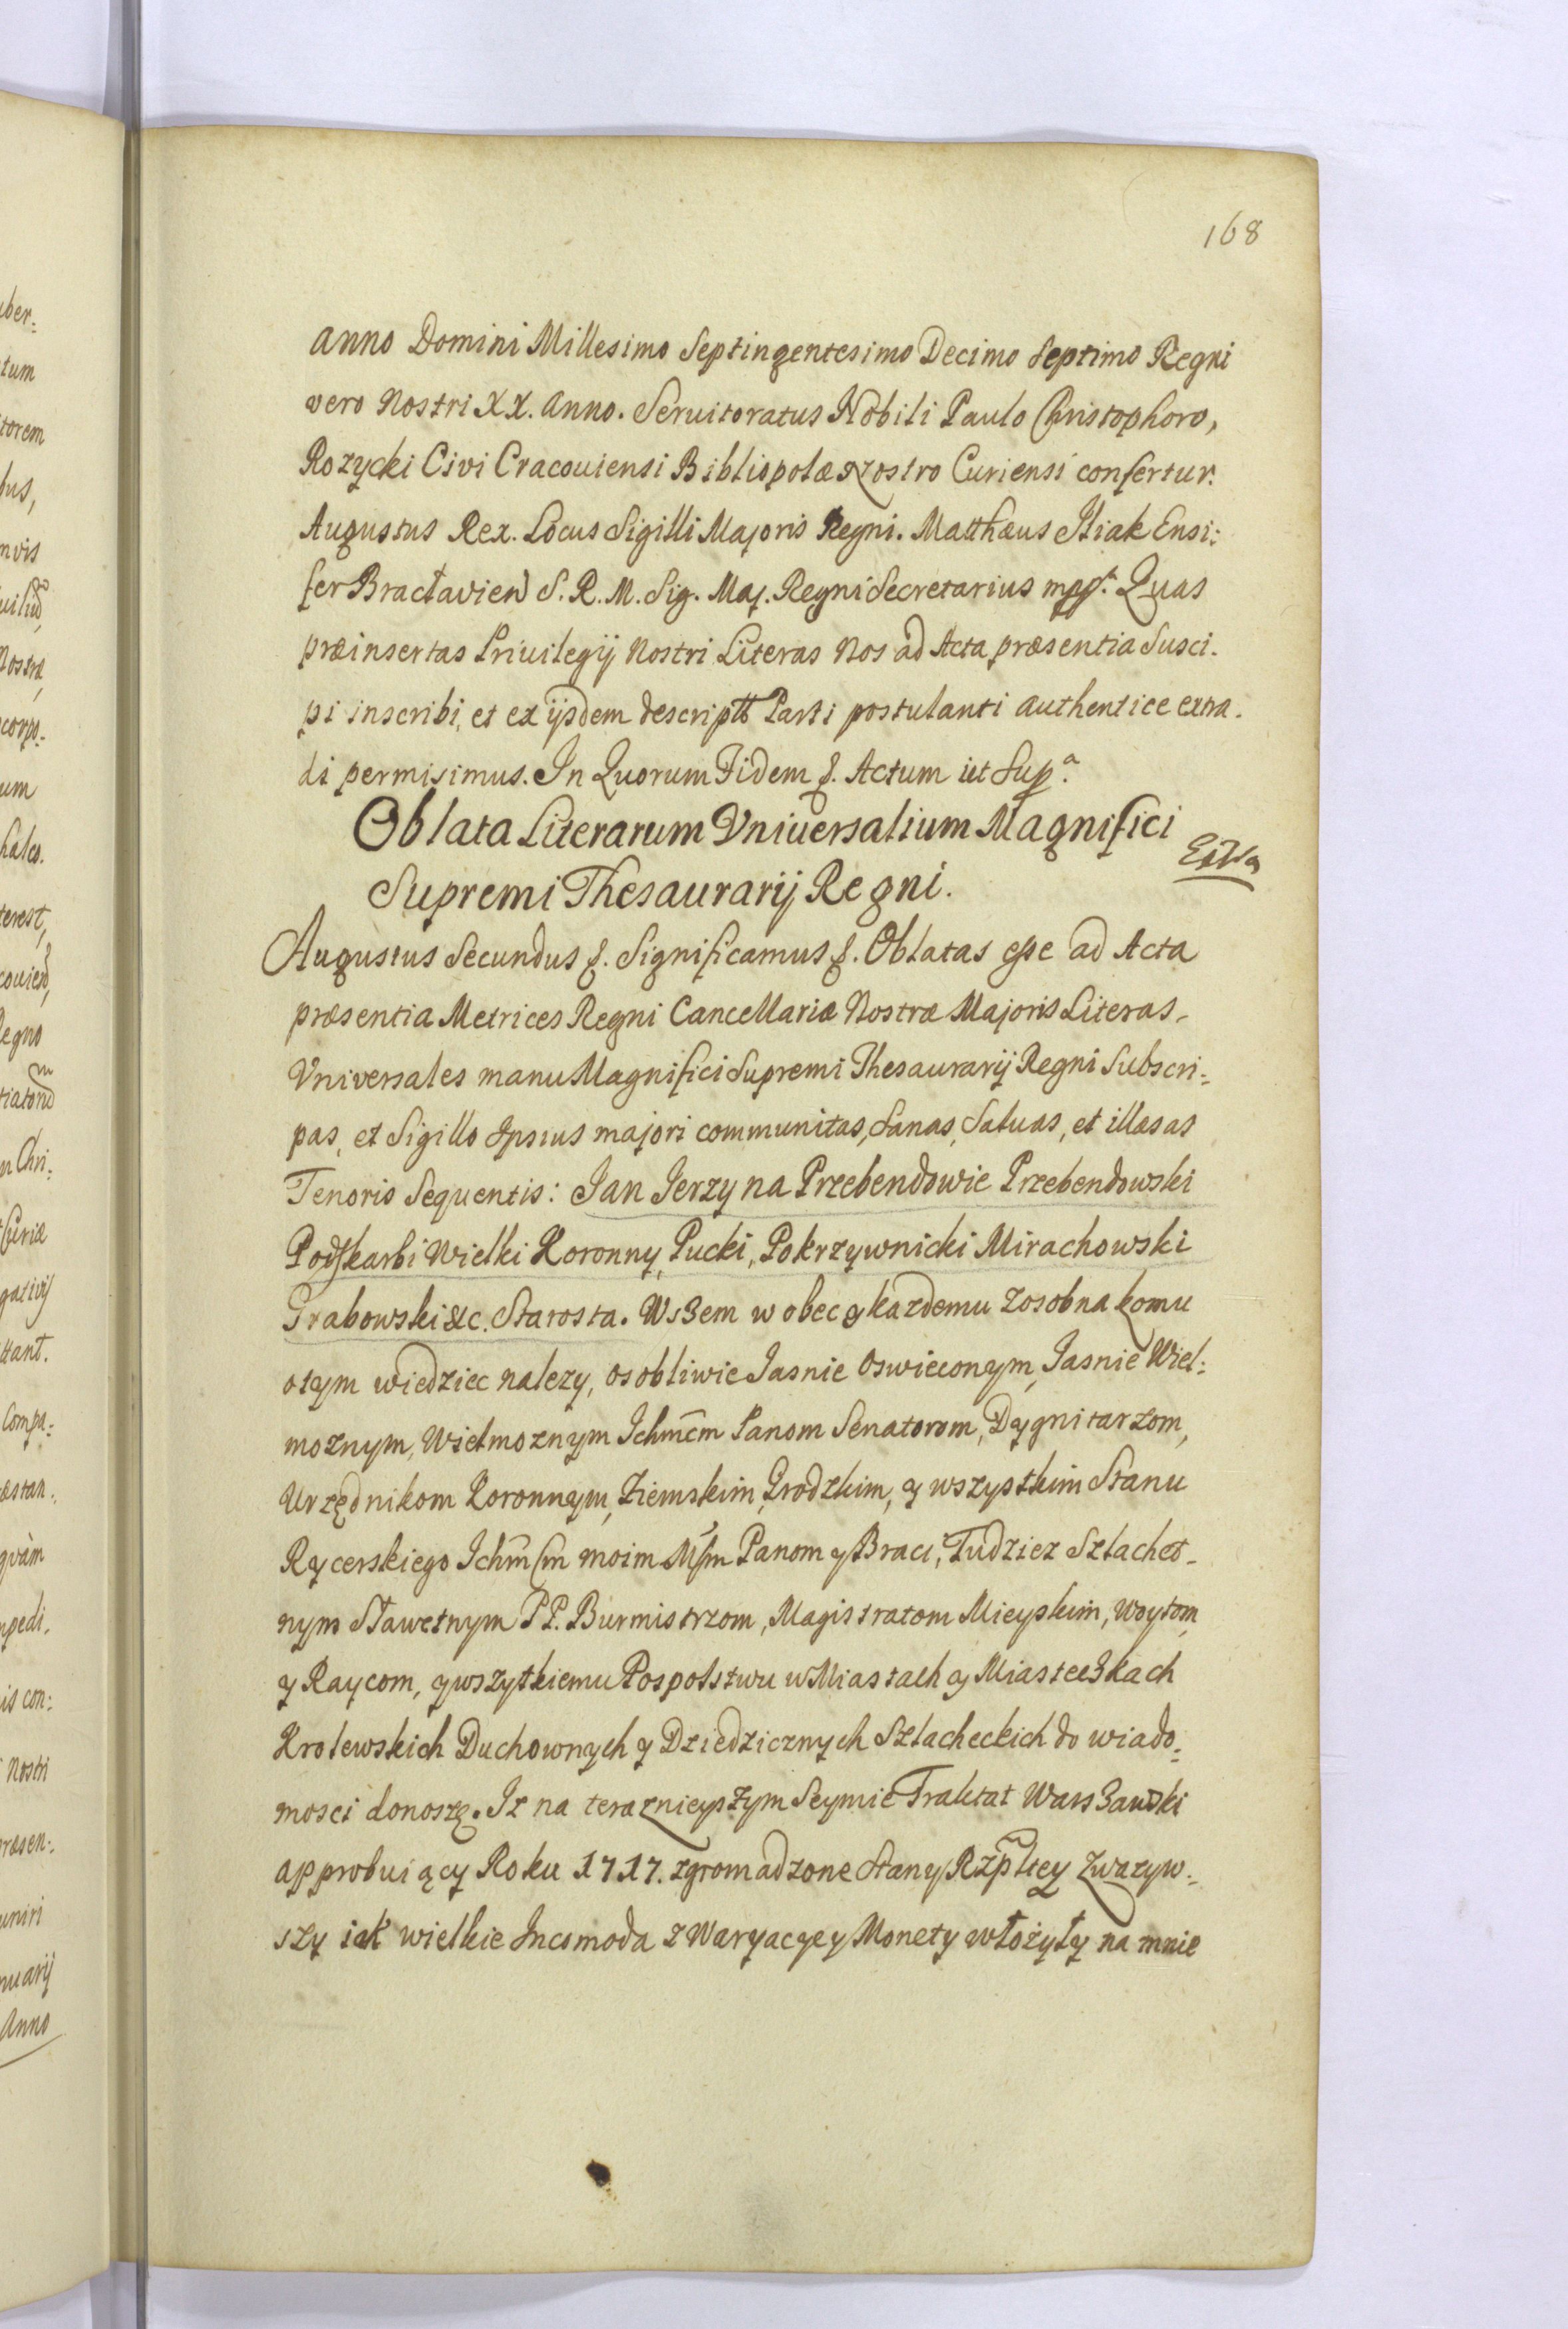 168
anno Domini Millesimo Septingentesimo Decimo Septimo Regni
vero Nostri XX. Anno. Servitoratus Nobili Paulo Christophoro,
Rozycki Civi Cracoviensi Bibliopolæ Nostro Curiensi confertur.
Augustus Rex. Locus Sigilli Majoris Regni. Matthæus Iliak Ensi:
fer Bractavien S. R. M. Sig. Maj. Regni Secretarius mpp. Quas
præinsertas Privilegij Nostri Literas Nos ad Acta præsentia Susci-
pi inscribi, et ex ijsdem descriptt Parti postulanti authentice extra-
di permisimus. In Quorum Fidem &. Actum ut Supª.
Oblata Literarum Vniversalium Magnifici
Supremi Thesaurarij Regni.
Augustus Secundus &. Significamus &. Oblatas esse ad Acta
præsentia Metrices Regni Cancellariæ Nostræ Majoris Literas
Vniversales manu Magnifici Supremi Thesaurarij Regni Subscri:
pas, et Sigillo Ipsius majori communitas, Sanas, Saluas, et illæsas
Tenoris Sequentis: Jan Jerzy na Przebendowie Przebendowski
Podskarbi Wielki Koronny, Pucki, Pokrzywnicki Mirachowski
Grabowski &c. Starosta. Ws3em w obec y kazdemu zosobna komu
otym wiedziec nalezy, osobliwie Jasnie Oswieconym, Jasnie Wiel:
moznym, Wielmoznym Ichmcm Panom Senatorom, Dygnitarzom,
Urzędnikom Koronnym, Ziemskim, Grodzkim, y wszystkim Stanu
Rycerskiego Ichm Cm moim Mm Panom y Braci, Tudziez Szlachet-
nym Sławetnym PP. Burmistrzom, Magistratom Mieyskim, Woytom,
y Raycom, y wszytkiemu Pospolstwu w Miastach y Miastec3kach
Krolewskich Duchownych y Dziedzicznych Szlacheckich do wiado:
mosci donoszę. Iz na teraznieyszym Seymie Traktat Wars3awski
approbuiący Roku 1717. zgromadzone Stany Rzpltey Zwazyw:
szy iak wielkie Incomoda z Waryacyey Monety włożyły na mnie